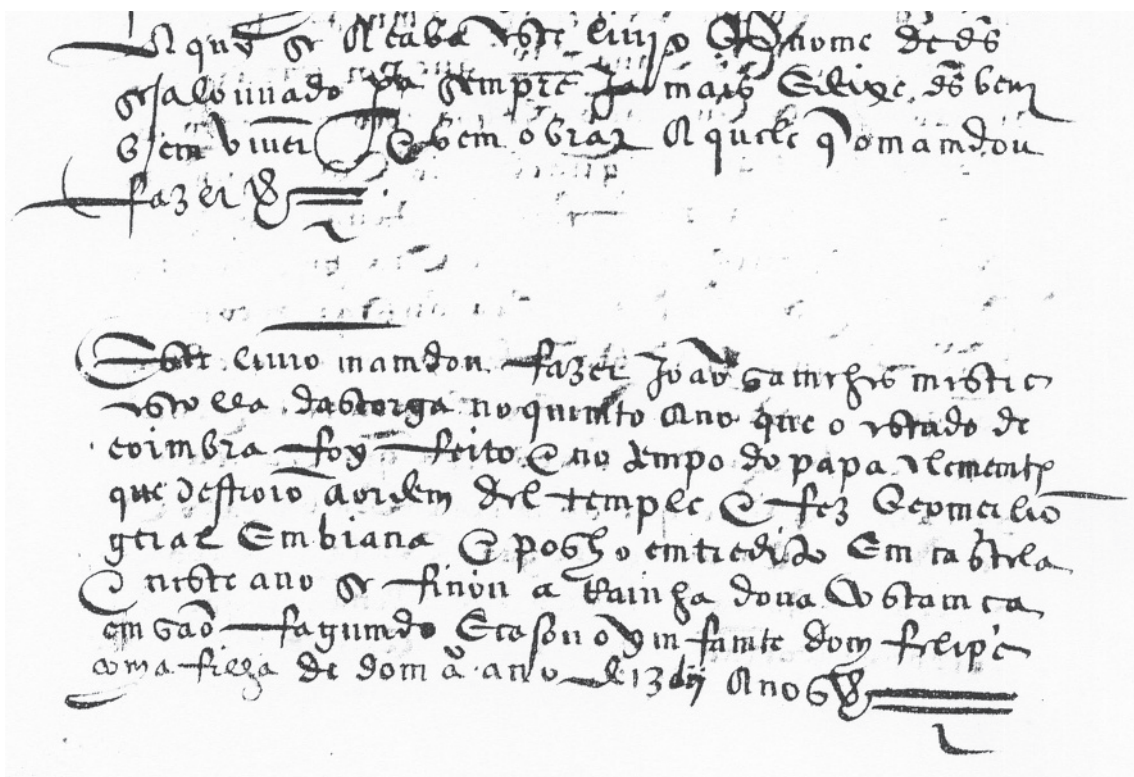 Aquy se Acaba este livro En nome de ds
seja louuado pa sempre Ja mais E leixe ds bem
bem viuer E bem obrar Aquele q o mamdou
fazer
Este liuro mamdou fazer Joaõ samches mestre
escolla dastorga no quimto Ano que o estudo de
coimbra foy feito E no tempo do papa clememte
que destroio a ordem del temple E fez Ho comcilio
geral Em biana E pos ho emtredito Em castela
E neste ano se finou a Rainha dona Costamca
em saõ fagumdo E casou o ymfamte dom felipe
com a filha de dom aº ano de 13 dij Anos